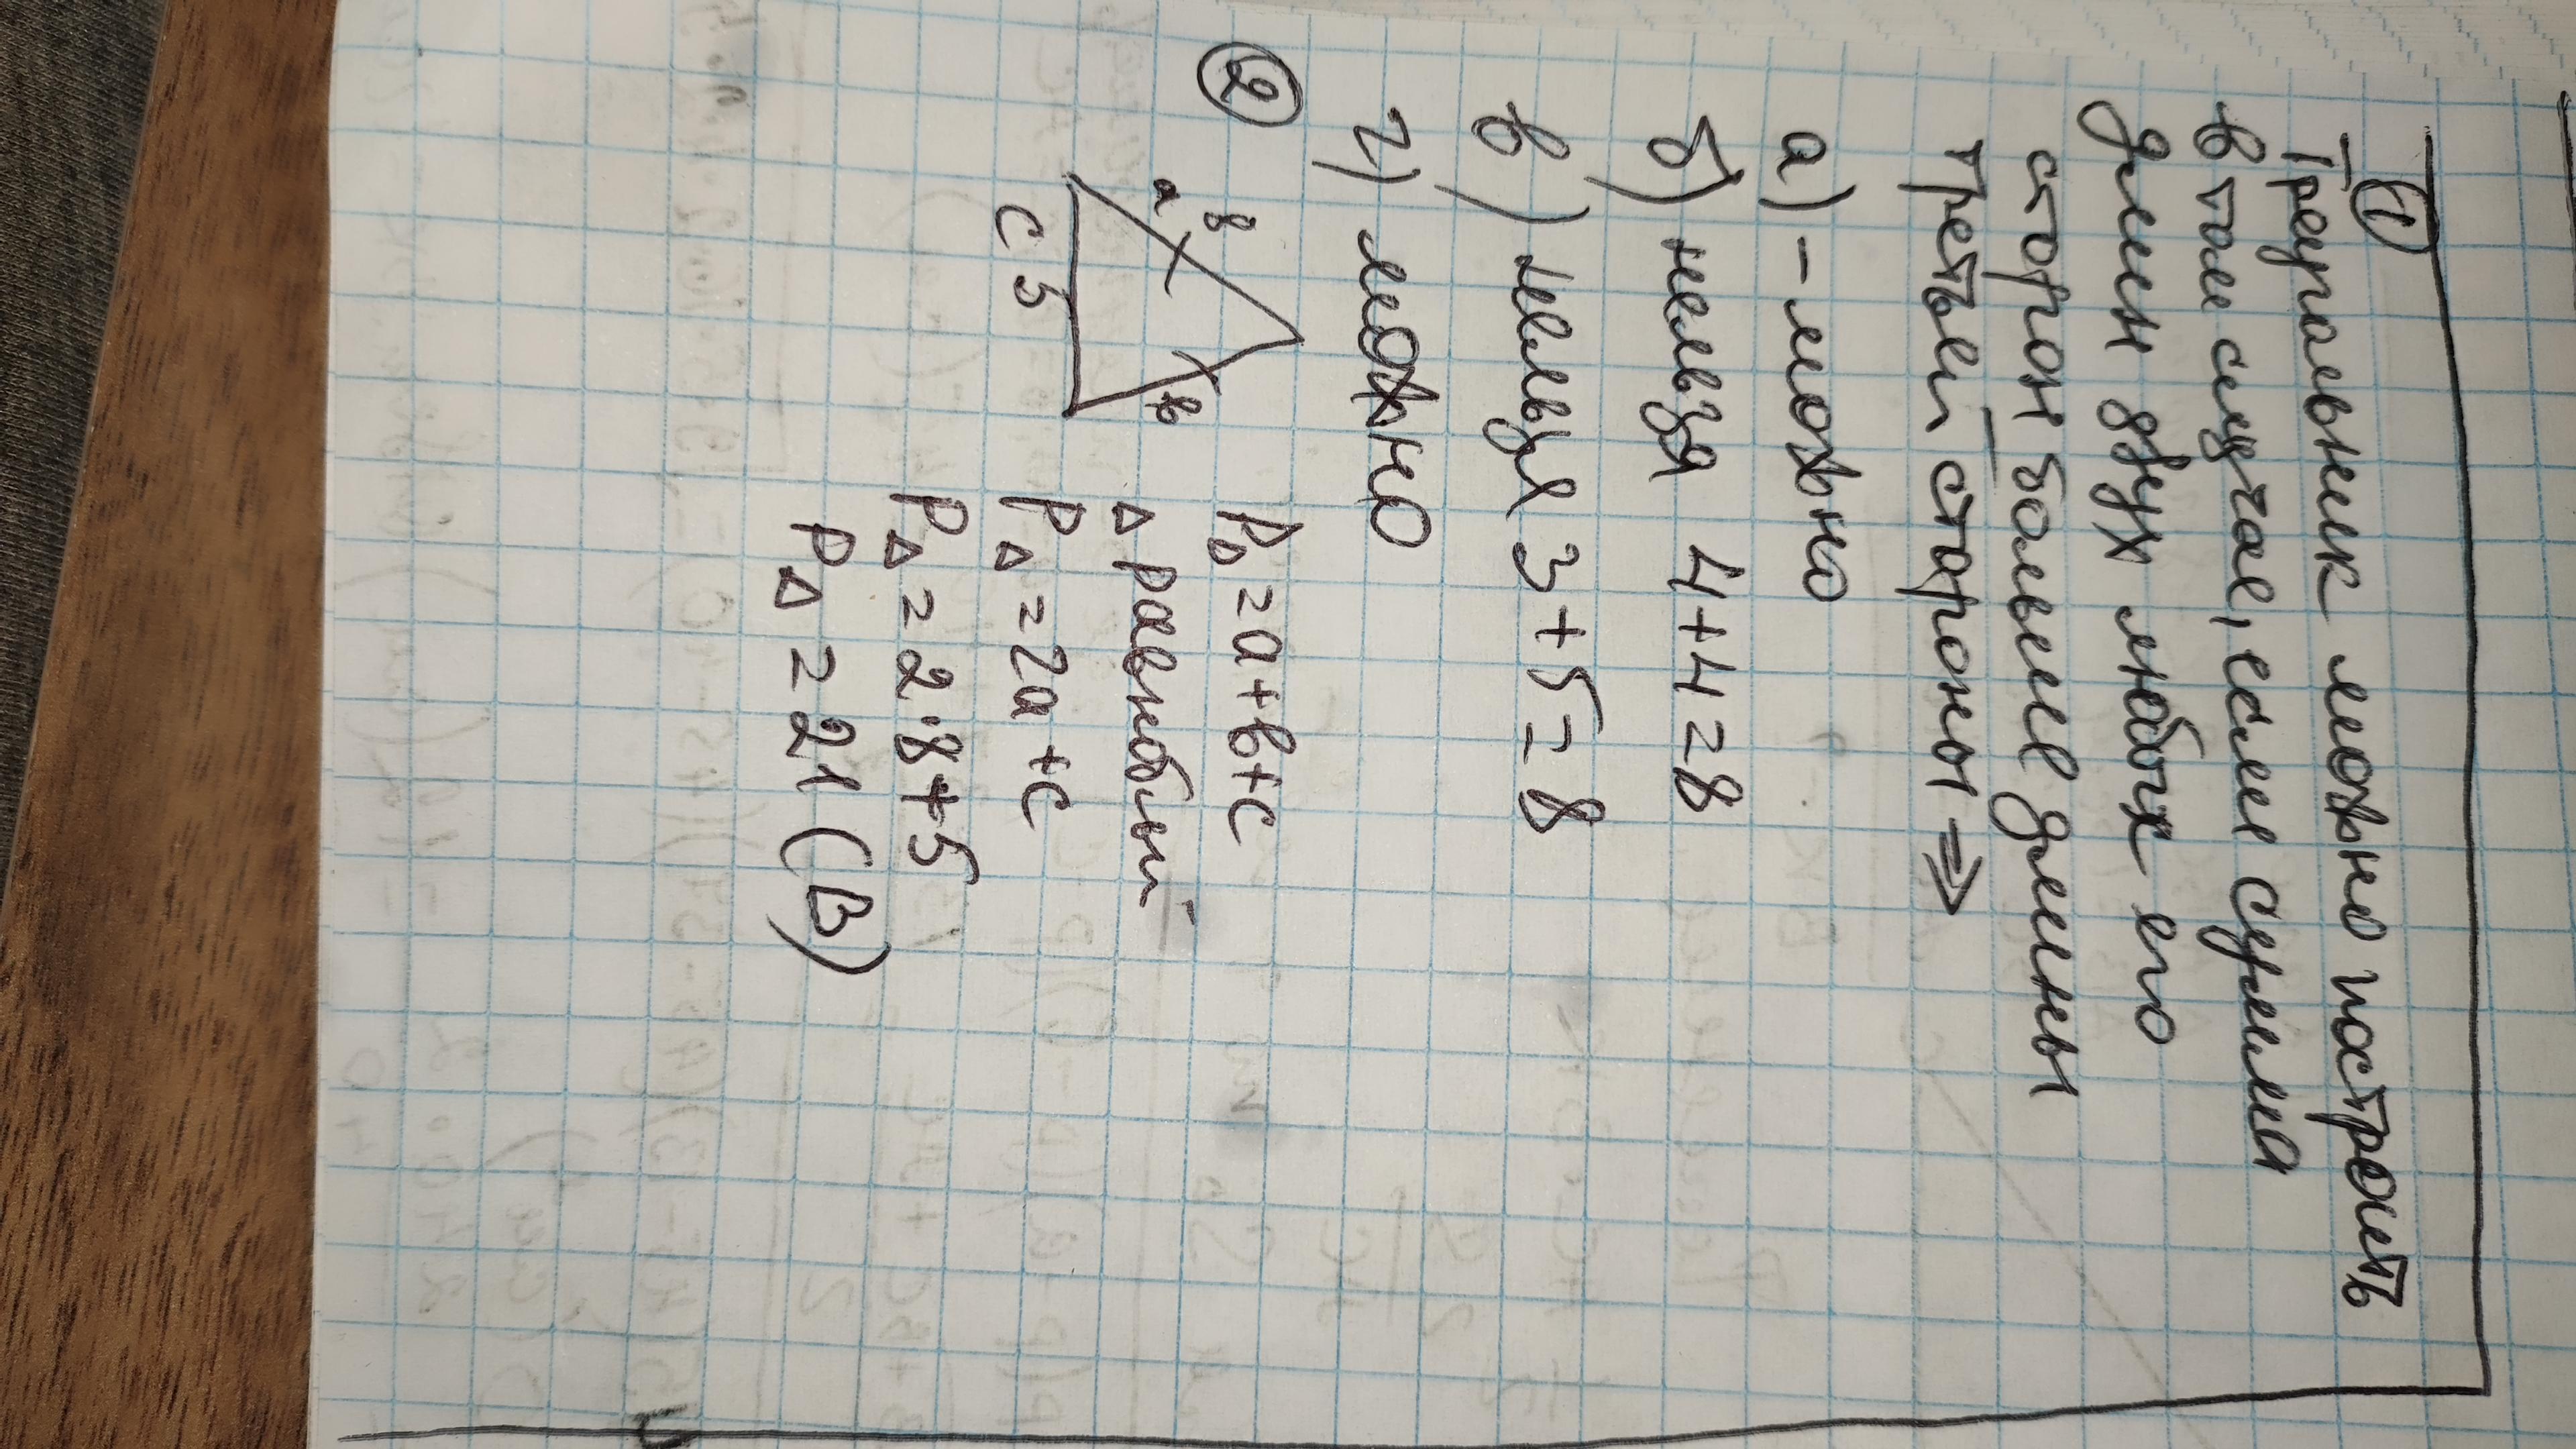 ①
Треугольник можно построить
в том случае, если сумма
длин двух любых его
сторон больше длины
третьей стороны ⇒
а) – можно
б) нельзя 4+4=8
в) нельзя 3+5=8
г) можно
②
8
а
в
с 5
P△ = а+в+с
△ равнобый
P△ = 2а+с
P△ = 2·8+5
P△ = 21 (В)